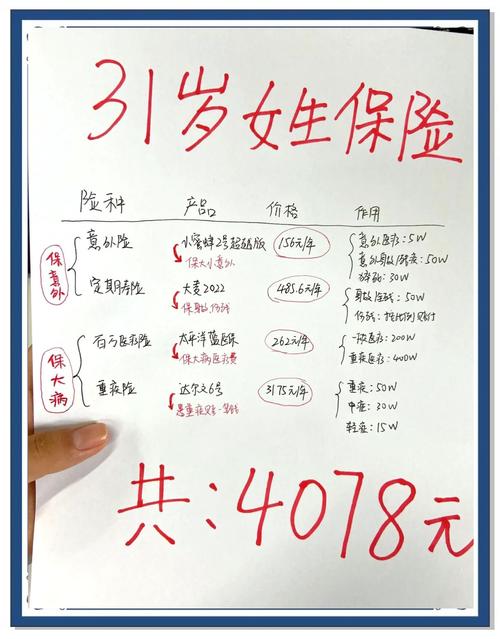 31岁女生保险
险种 产品 价格 作用
保意外
意外险 小蜜蜂2号超越版 156元/年 意外医疗:5W
保大小意外 意外身故/伤残:50W
猝死:30W
定期寿险 大麦2022 485.6元/年 身故/全残:50W
保身故伤残
保大病
百万医疗险 太平洋蓝医保 262元/年 一般医疗:200W
保大病医疗费 重疾医疗:400W
重疾险 达尔文6号 3175元/年 重疾:50W
患重疾只赔一笔钱 中症:30W
轻症:15W
共:4078元